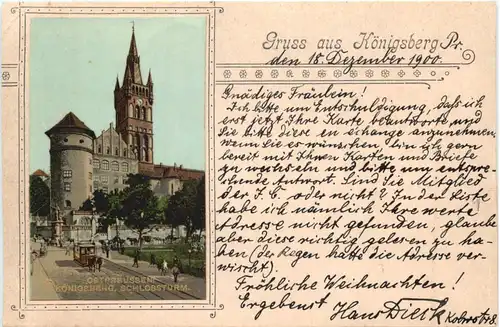 Gruss aus Königsberg Pr.
den 18. Dezember 1900.
Gnädiges Fräulein!
Ich bitte um Entschuldigung, dass ich
erst jetzt Ihre Karte beantworte und
Sie bitte diese en echange anzunehmen,
wenn Sie es wünschen, bin ich gern
bereit mit Ihnen Karten und Briefe
zu wechseln und bitte um entspre-
chende Antwort. Sind Sie Mitglied
des I.C. oder nicht? In der Liste
habe ich nämlich Ihre werte
Adresse nicht gefunden, glaube
aber diese richtig gelesen zu ha-
ben (der Regen hatte die Adresse ver-
wischt).
Fröhliche Weihnachten!
Ergebenst Hans
OSTPREUSSEN
KÖNIGSBERG, SCHLOSSTURM.